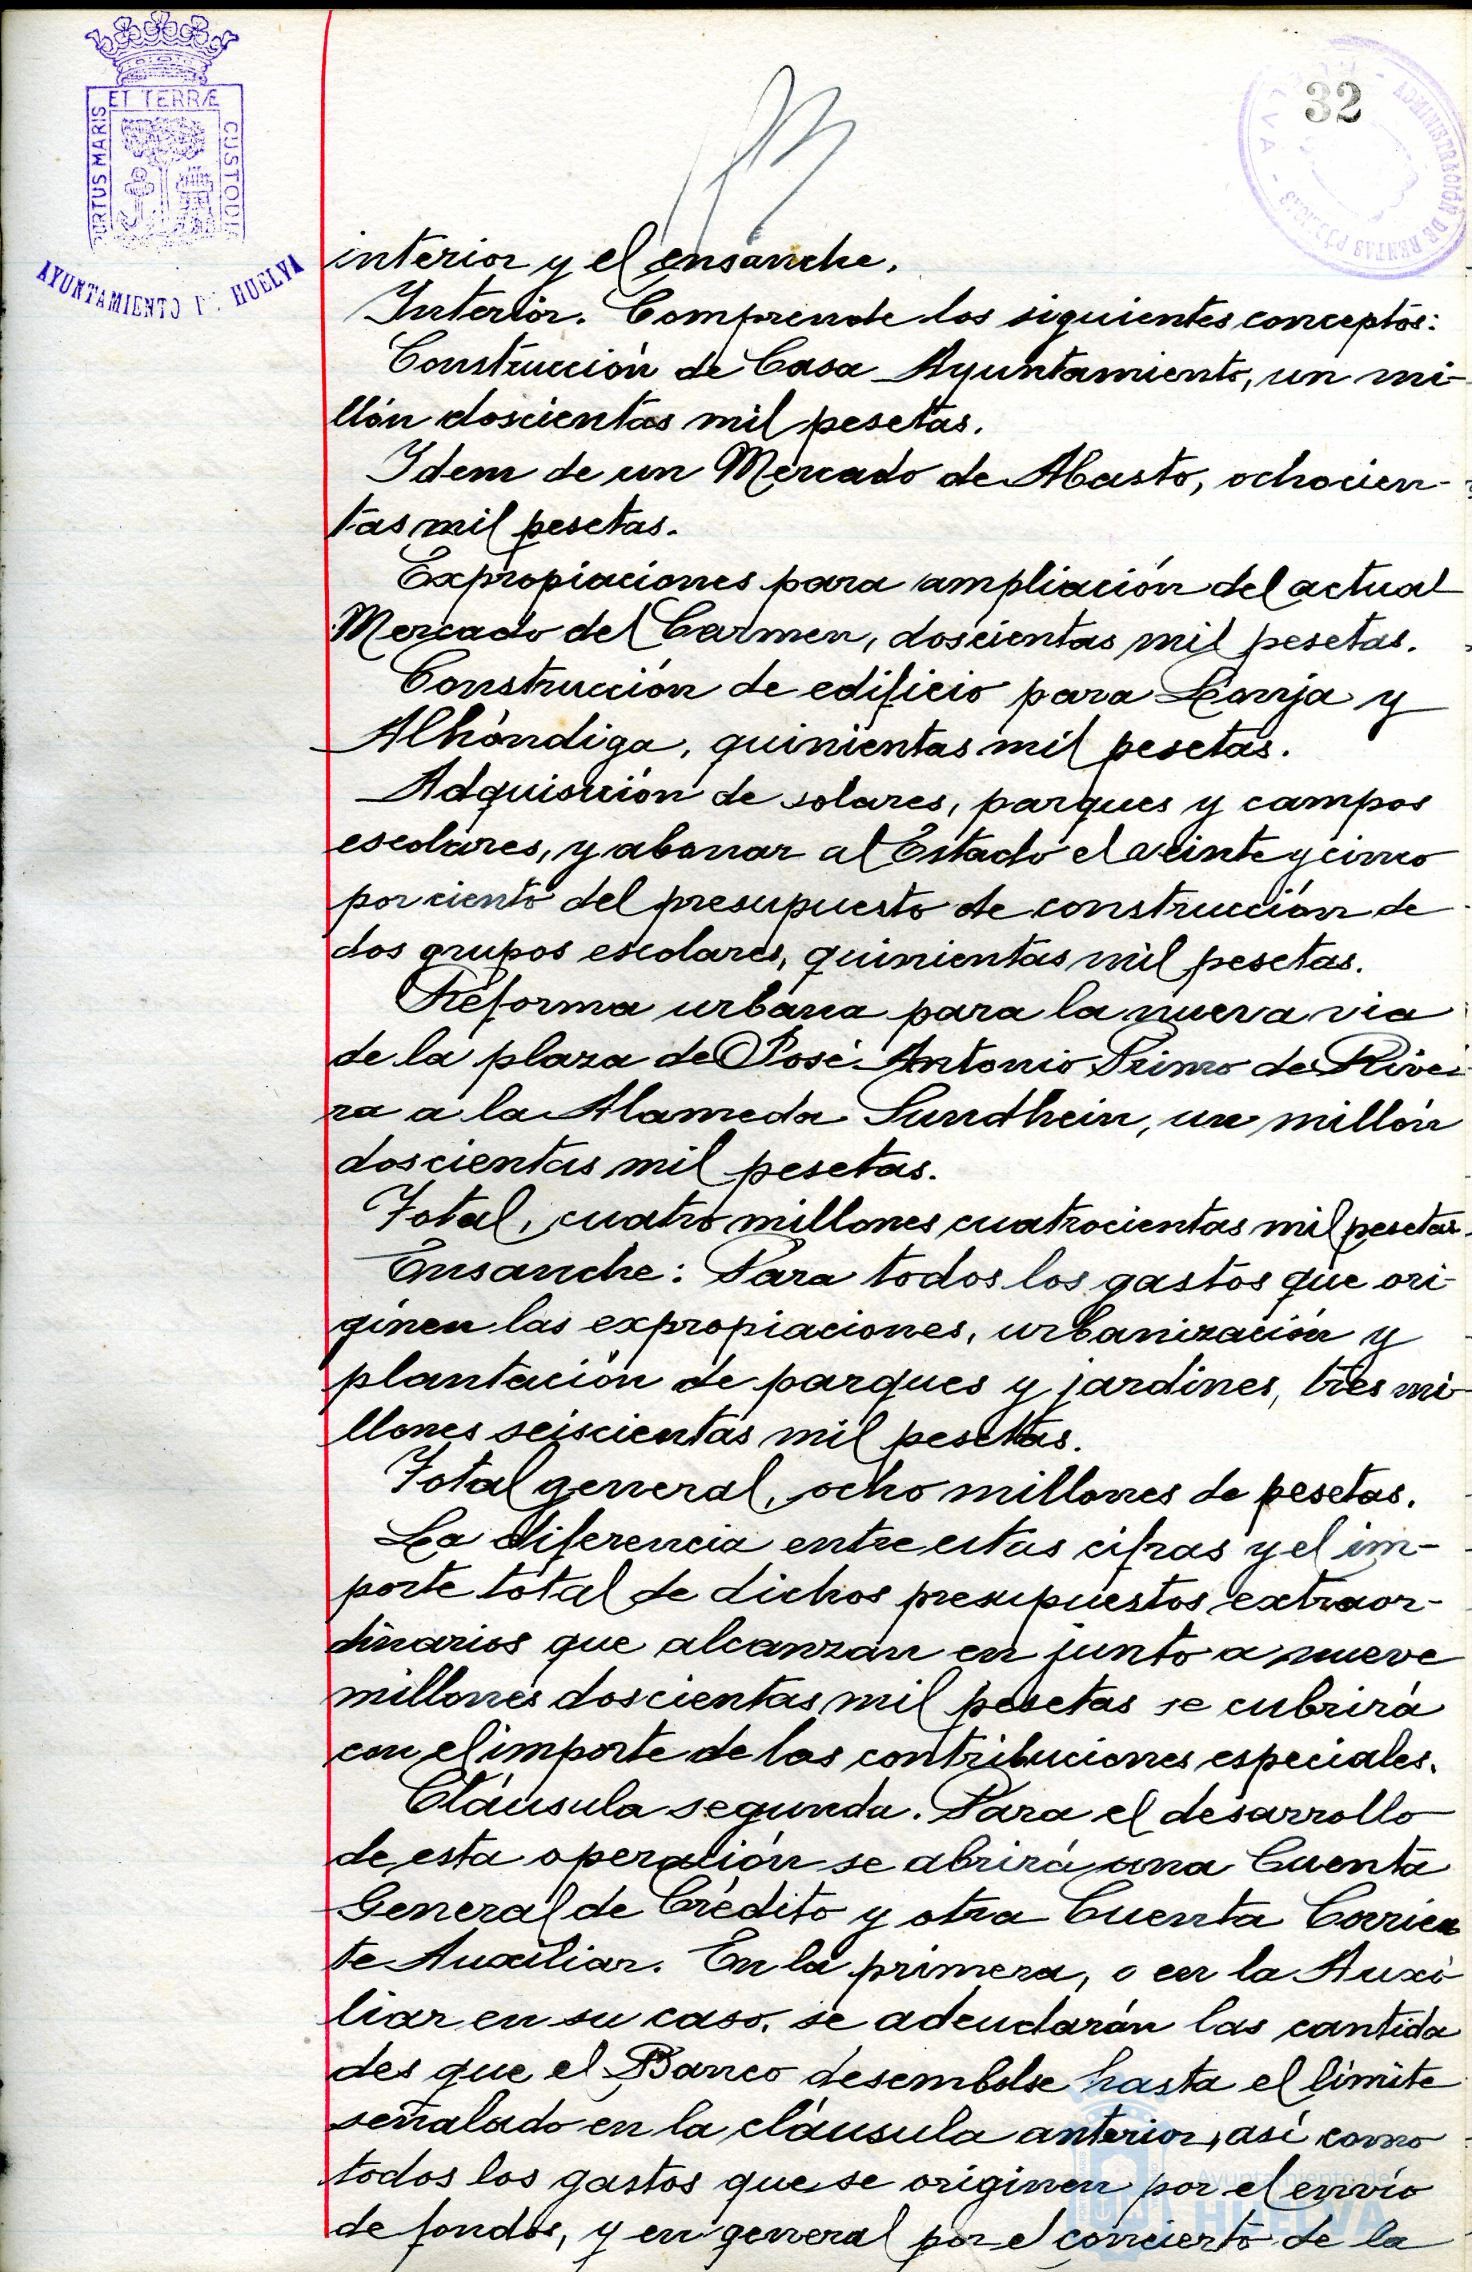 PORTUS MARIS
ET TERRÆ
CUSTODIA
AYUNTAMIENTO DE HUELVA
32
ADMINISTRACIÓN DE RENTAS PÚBLICAS
interior y el ensanche.
Interior. Comprende los siguientes conceptos:
Construcción de Casa Ayuntamiento, un mi-
llón doscientas mil pesetas.
Idem de un Mercado de Abasto, ochocien-
tas mil pesetas.
Expropiaciones para ampliación del actual
Mercado del Carmen, doscientas mil pesetas.
Construcción de edificio para Lonja y
Alhóndiga, quinientas mil pesetas.
Adquisición de solares, parques y campos
escolares, y abonar al Estado el veinte y cinco
por ciento del presupuesto de construcción de
dos grupos escolares, quinientas mil pesetas.
Reforma urbana para la nueva via
de la plaza de José Antonio Primo de Rive-
ra a la Alameda Sundhein, un millón
doscientas mil pesetas.
Total, cuatro millones cuatrocientas mil pesetas.
Ensanche: Para todos los gastos que ori-
ginen las expropiaciones, urbanización y
plantación de parques y jardines, tres mi-
llones seiscientas mil pesetas.
Total general, ocho millones de pesetas.
La diferencia entre estas cifras y el im-
porte total de dichos presupuestos extraor-
dinarios que alcanzan en junto a nueve
millones doscientas mil pesetas se cubrirá
con el importe de las contribuciones especiales.
Cláusula segunda. Para el desarrollo
de esta operación se abrirá una Cuenta
General de Crédito y otra Cuenta Corrien
te Auxiliar. En la primera, o en la Auxi
liar en su caso, se adeudarán las cantida
des que el Banco desembolse hasta el límite
señalado en la cláusula anterior, así como
todos los gastos que se originen por el envío
de fondos, y en general por el concierto de la
Ayuntamiento de
HUELVA